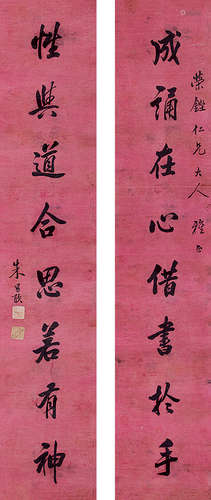 仁兄大人
成誦在心借書於手
性與道合思若有神
朱昌頤